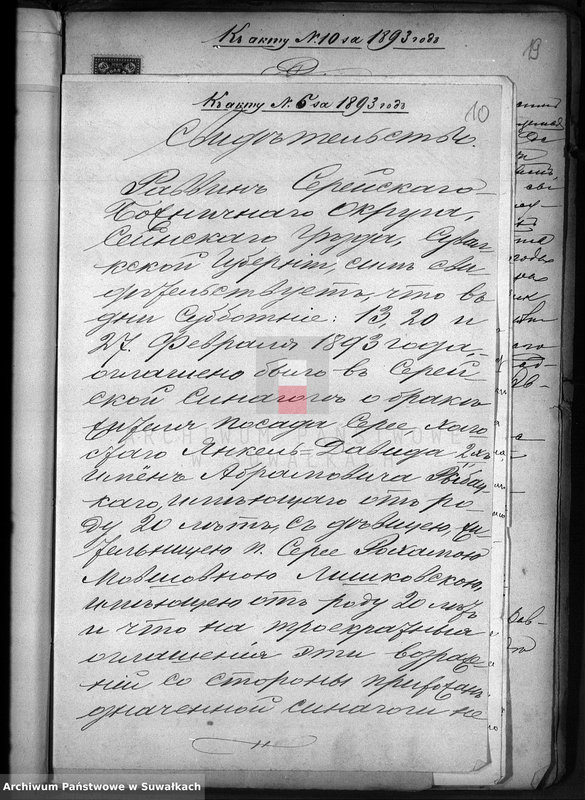 Къ акту № 10 за 1893 годъ
19
Къ акту № 6 за 1893 годъ
10
Свидѣтельство.
Раввинъ Серейскаго
Божничнаго Округа,
Сейнскаго уѣзда, Сувал
кской Губерніи, симъ сви
дѣтельствуетъ, что въ
дни Субботніе: 13, 20 и
27 Февраля 1893 года,
оглашено было въ Серей
ской синагогѣ о бракѣ
жителя посада Серее холо
стаго Янкель-Давида, 2хъ
имёнъ Абрамовича Рыбац
каго, имѣющаго отъ ро
ду 20 лѣтъ, съ дѣвицею, жи
тельницею п. Серее
Мовшовною Лишковскою,
имѣющею отъ роду 20 лѣтъ
и что на троекратныя
оглашенія эти возраже
ній со стороны прихожанъ
означенной синагоги не
ARCHIWUM PAŃSTWOWE
W SUWAŁKACH
Archiwum Państwowe w Suwałkach